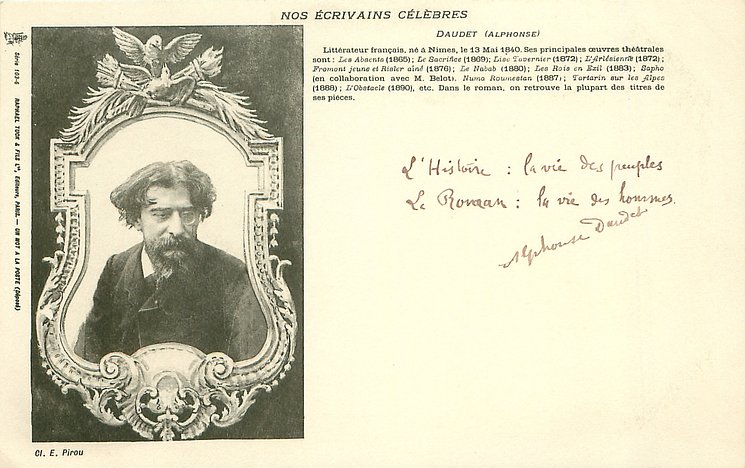 NOS ÉCRIVAINS CÉLÈBRES
DAUDET (ALPHONSE)
Littérateur français, né à Nîmes, le 13 Mai 1840. Ses principales œuvres théâtrales
sont : Les Absents (1865); Le Sacrifice (1869); Lise Tavernier (1872); L'Arlésienne (1872);
Fromont jeune et Risler aîné (1876); Le Nabab (1880); Les Rois en Exil (1883); Sapho
(en collaboration avec M. Belot). Numa Roumestan (1887); Tartarin sur les Alpes
(1888); L'Obstacle (1890), etc. Dans le roman, on retrouve la plupart des titres de
ses pièces.
L'Histoire : la vie des peuples
Le Roman : la vie des hommes.
Alphonse Daudet
RAPHAEL TUCK & FILS Ld, Éditeurs, PARIS. — UN MOT A LA POSTE (Déposé)
Cl. E. Pirou